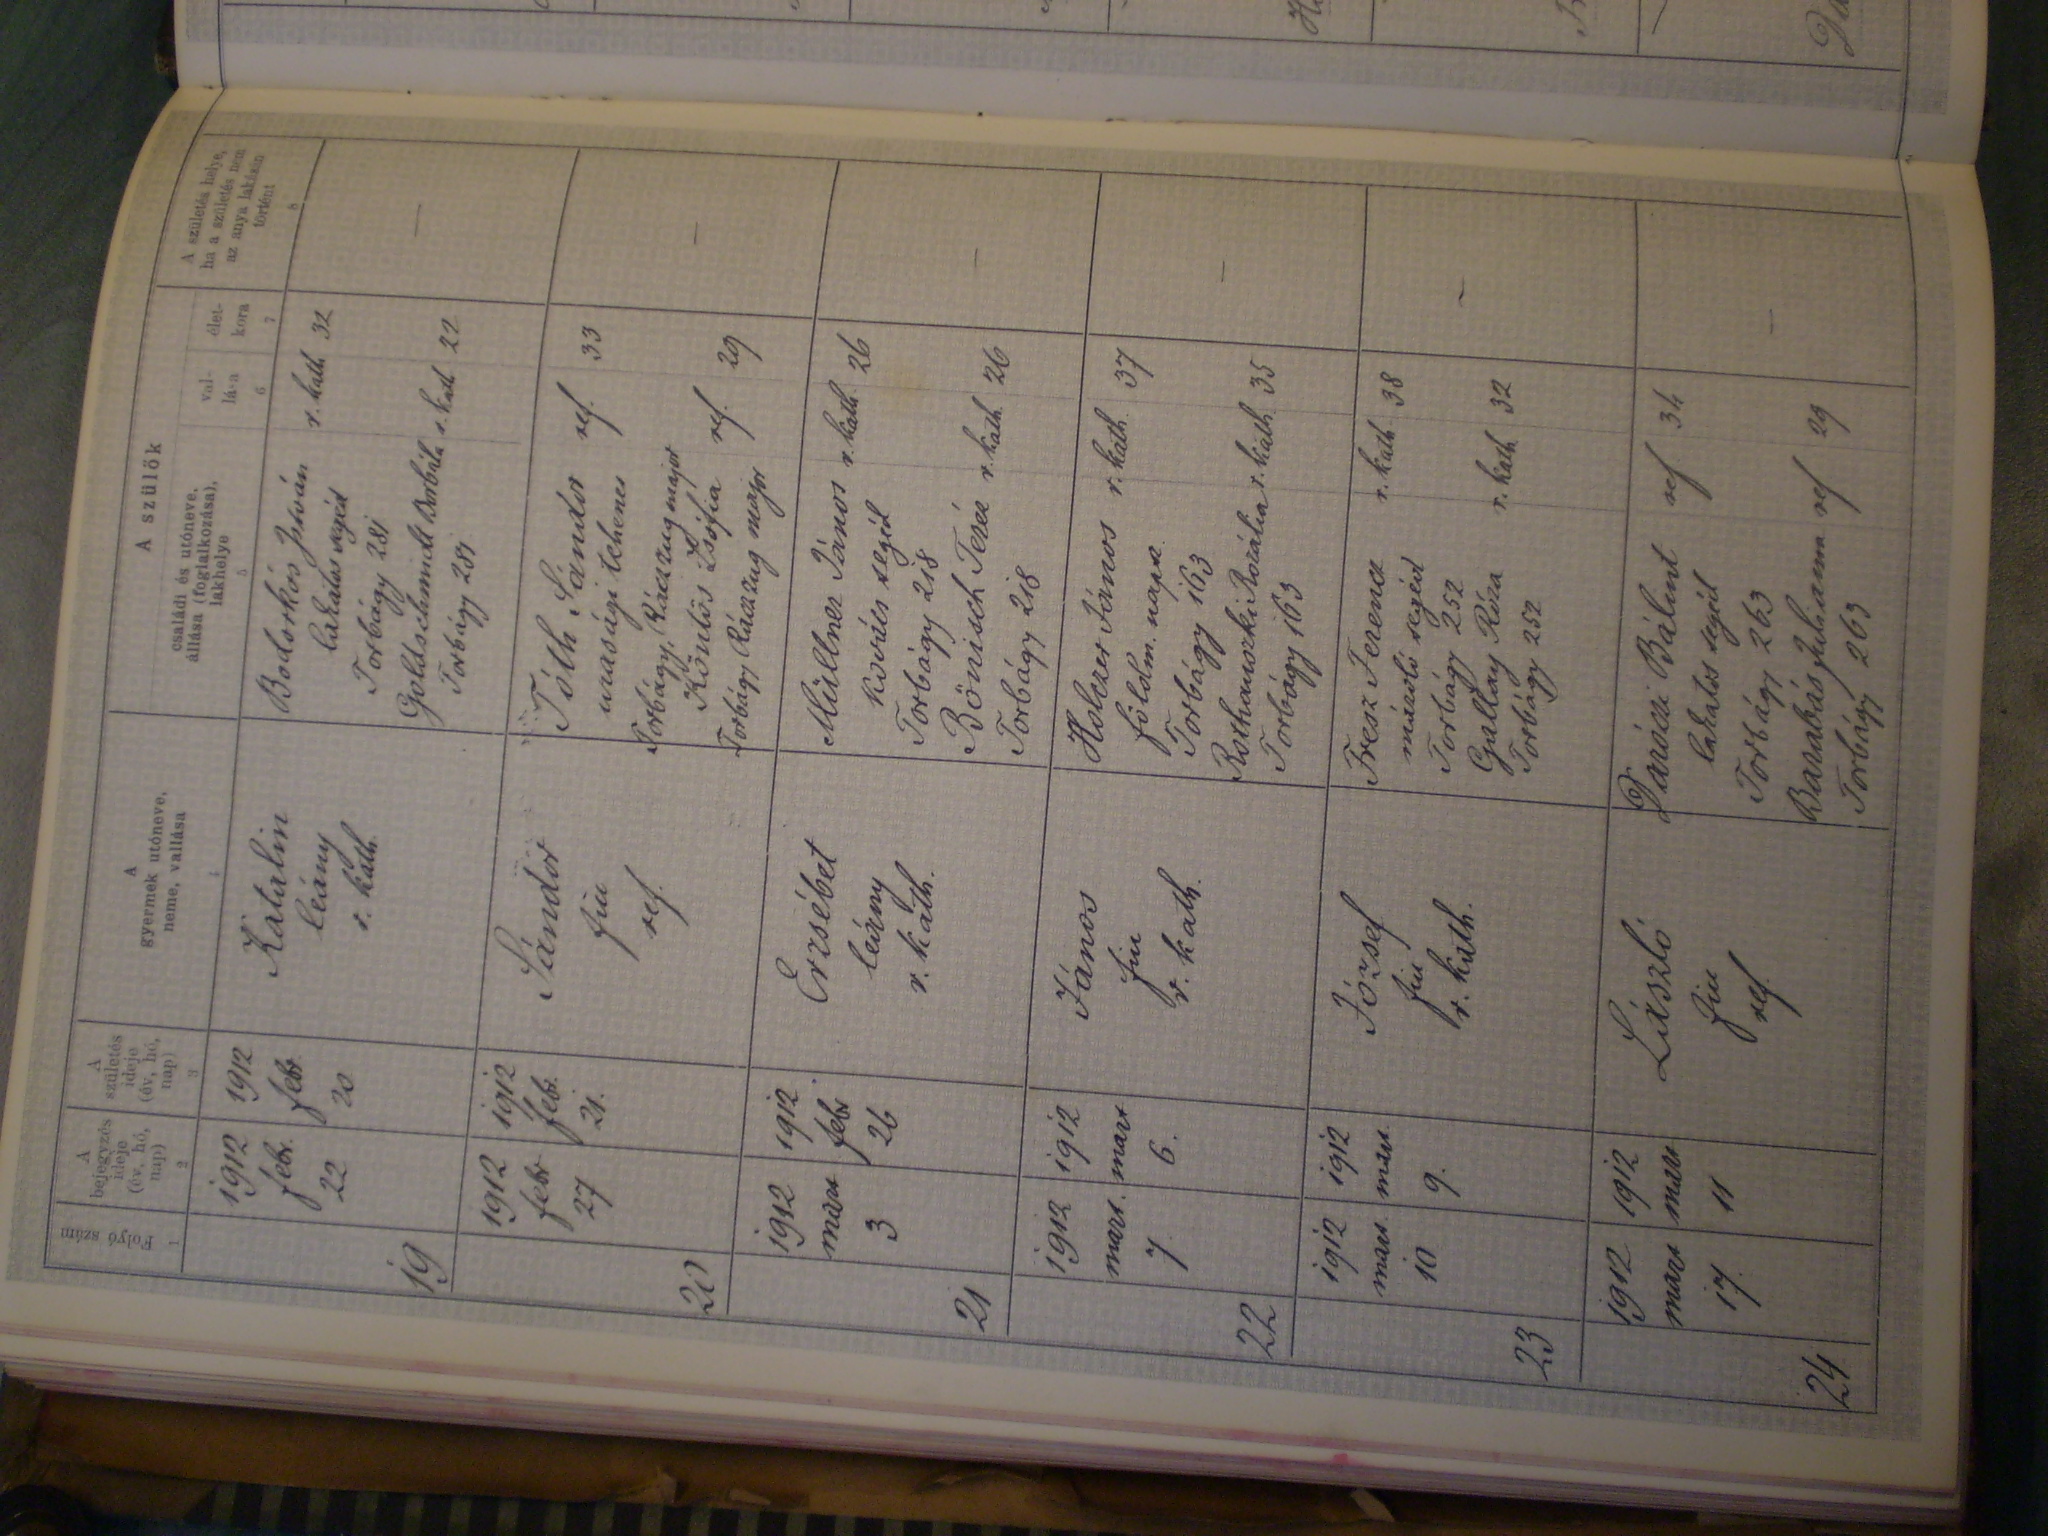 A szülők
Folyó szám
A
bejegyzés
ideje
(év, hó,
nap)
A
születés
ideje
(év, hó,
nap)
A
gyermek utóneve,
neme, vallása
családi és utóneve,
állása (foglalkozása),
lakhelye
val-
lása
élet-
kora
A születés helye,
ha a születés nem
az anya lakásán
történt
1
2
3
4
5
6
7
8
19
1912
febr.
22
1912
febr.
20
Katalin
leány
r. kath.
Bodorkós István r. kath. 32
lakatos segéd
Torbágy 281
Goldschmidt Borbála r. kath. 22
Torbágy 281
—
20
1912
febr
27
1912
febr.
21.
Sándor
fiu
ref.
Tóth Sándor ref. 33
urasági tehenes
Torbágy, Ráczzug major
Kömlös Zsófia ref. 29
Torbágy Ráczzug major
—
21
1912
márs
3
1912
febr
26
Erzsébet
leány
r. kath.
Müllner János r. kath. 26
kovács segéd
Torbágy 218
Bönisch Teréz r. kath. 26
Torbágy 218
—
22
1912
mars.
7
1912
mars
6.
János
fiu
r. kath.
Holczer János r. kath. 37
földm. naps.
Torbágy 163
Rothanszki Rozália r. kath. 35
Torbágy 163
—
23
1912
mars.
10
1912
márs.
9.
József
fiu
r. kath.
Fresz Ferencz r. kath. 38
mázoló segéd
Torbágy 252
Gallay Róza r. kath. 32
Torbágy 252
—
24
1912
mars
17.
1912
márs
11
László
fiu
ref.
Daróczi Bálint ref 34
lakatos segéd
Torbágy 263
Barabás Julianna ref 29
Torbágy 263
—